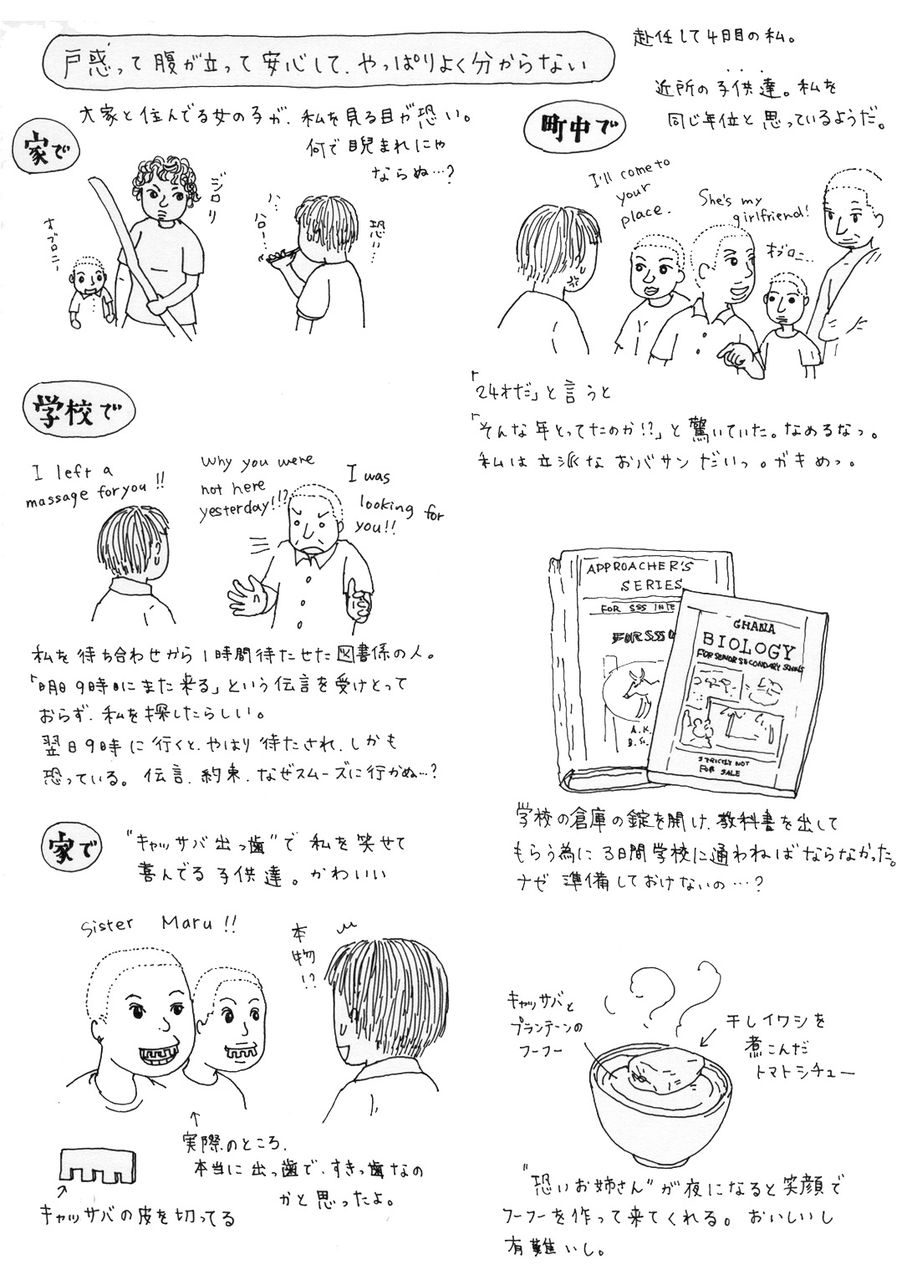 戸惑って腹が立って安心して、やっぱりよく分からない
赴任して4日目の私。
家で
大家と住んでる女の子が、私を見る目が恐い。
何で睨まれにゃ
ならぬ…?
オブロニー
ジロリ
ハ、
ハロー!
恐い…
町中で
近所の子供達。私を
同じ年位と思っているようだ。
I'll come to
your
place.
She's my
girlfriend!
オブロニ…
「24才だ」と言うと
「そんな年とってたのか!?」と驚いていた。なめるなっ。
私は立派なおバサンだいっ。ガキめっ。
学校で
I left a
massage for you!!
Why you were
not here
yesterday!!?
I was
looking for
you!!
私を待ち合わせから1時間待たせた図書係の人。
「明日9時にまた来る」という伝言を受けとって
おらず、私を探したらしい。
翌日9時に行くと、やはり待たされ、しかも
恐っている。伝言、約束、なぜスムーズに行かぬ…?
APPROACHER'S
SERIES
FOR SSS INTE
FOR SSS
A.K.
B.S.
GHANA
BIOLOGY
FOR SENIOR SECONDARY SCHOOLS
STRICTLY NOT
FOR SALE
学校の倉庫の錠を開け、教科書を出して
もらう為に3日間学校に通わねばならなかった。
ナゼ準備しておけないの…?
家で
"キャッサバ出っ歯"で私を笑せて
喜んでる子供達。かわいい
Sister Maru!!
本物!?
↑
実際のところ、
本当に出っ歯で、すきっ歯なの
かと思ったよ。
キャッサバの皮を切ってる
キャッサバと
プランテーンの
フーフー
干しイワシを
煮こんだ
トマトシチュー
"恐いお姉さん"が夜になると笑顔で
フーフーを作って来てくれる。おいしいし
有難いし。